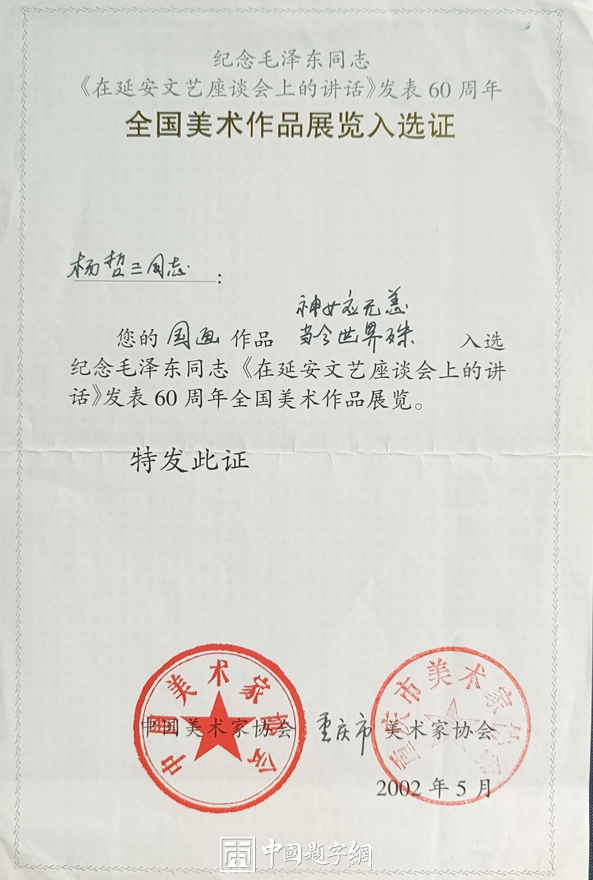 纪念毛泽东同志
《在延安文艺座谈会上的讲话》发表 60 周年
全国美术作品展览入选证
杨哲三同志:
神女应无恙
您的 国画 作品 当今世界殊 入选
纪念毛泽东同志《在延安文艺座谈会上的讲
话》发表 60 周年全国美术作品展览。
特发此证
中国美术家协会
重庆市美术家协会
中国美术家协会 重庆市 美术家协会
2002 年 5 月
中國题字網